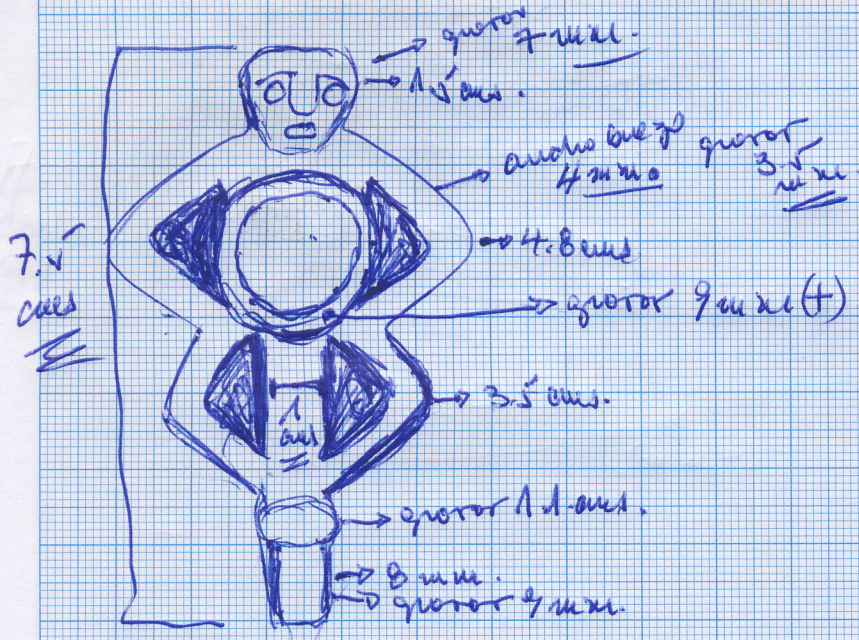 grosor
7 mm.
1.5 cms.
ancho brazo
4 mm.
grosor
3.5
mm.
7.5
cms
4.8 cms
grosor 9 mm (+)
3.5 cms.
1
cms
grosor 1.1 cms.
8 mm.
grosor 9 mm.